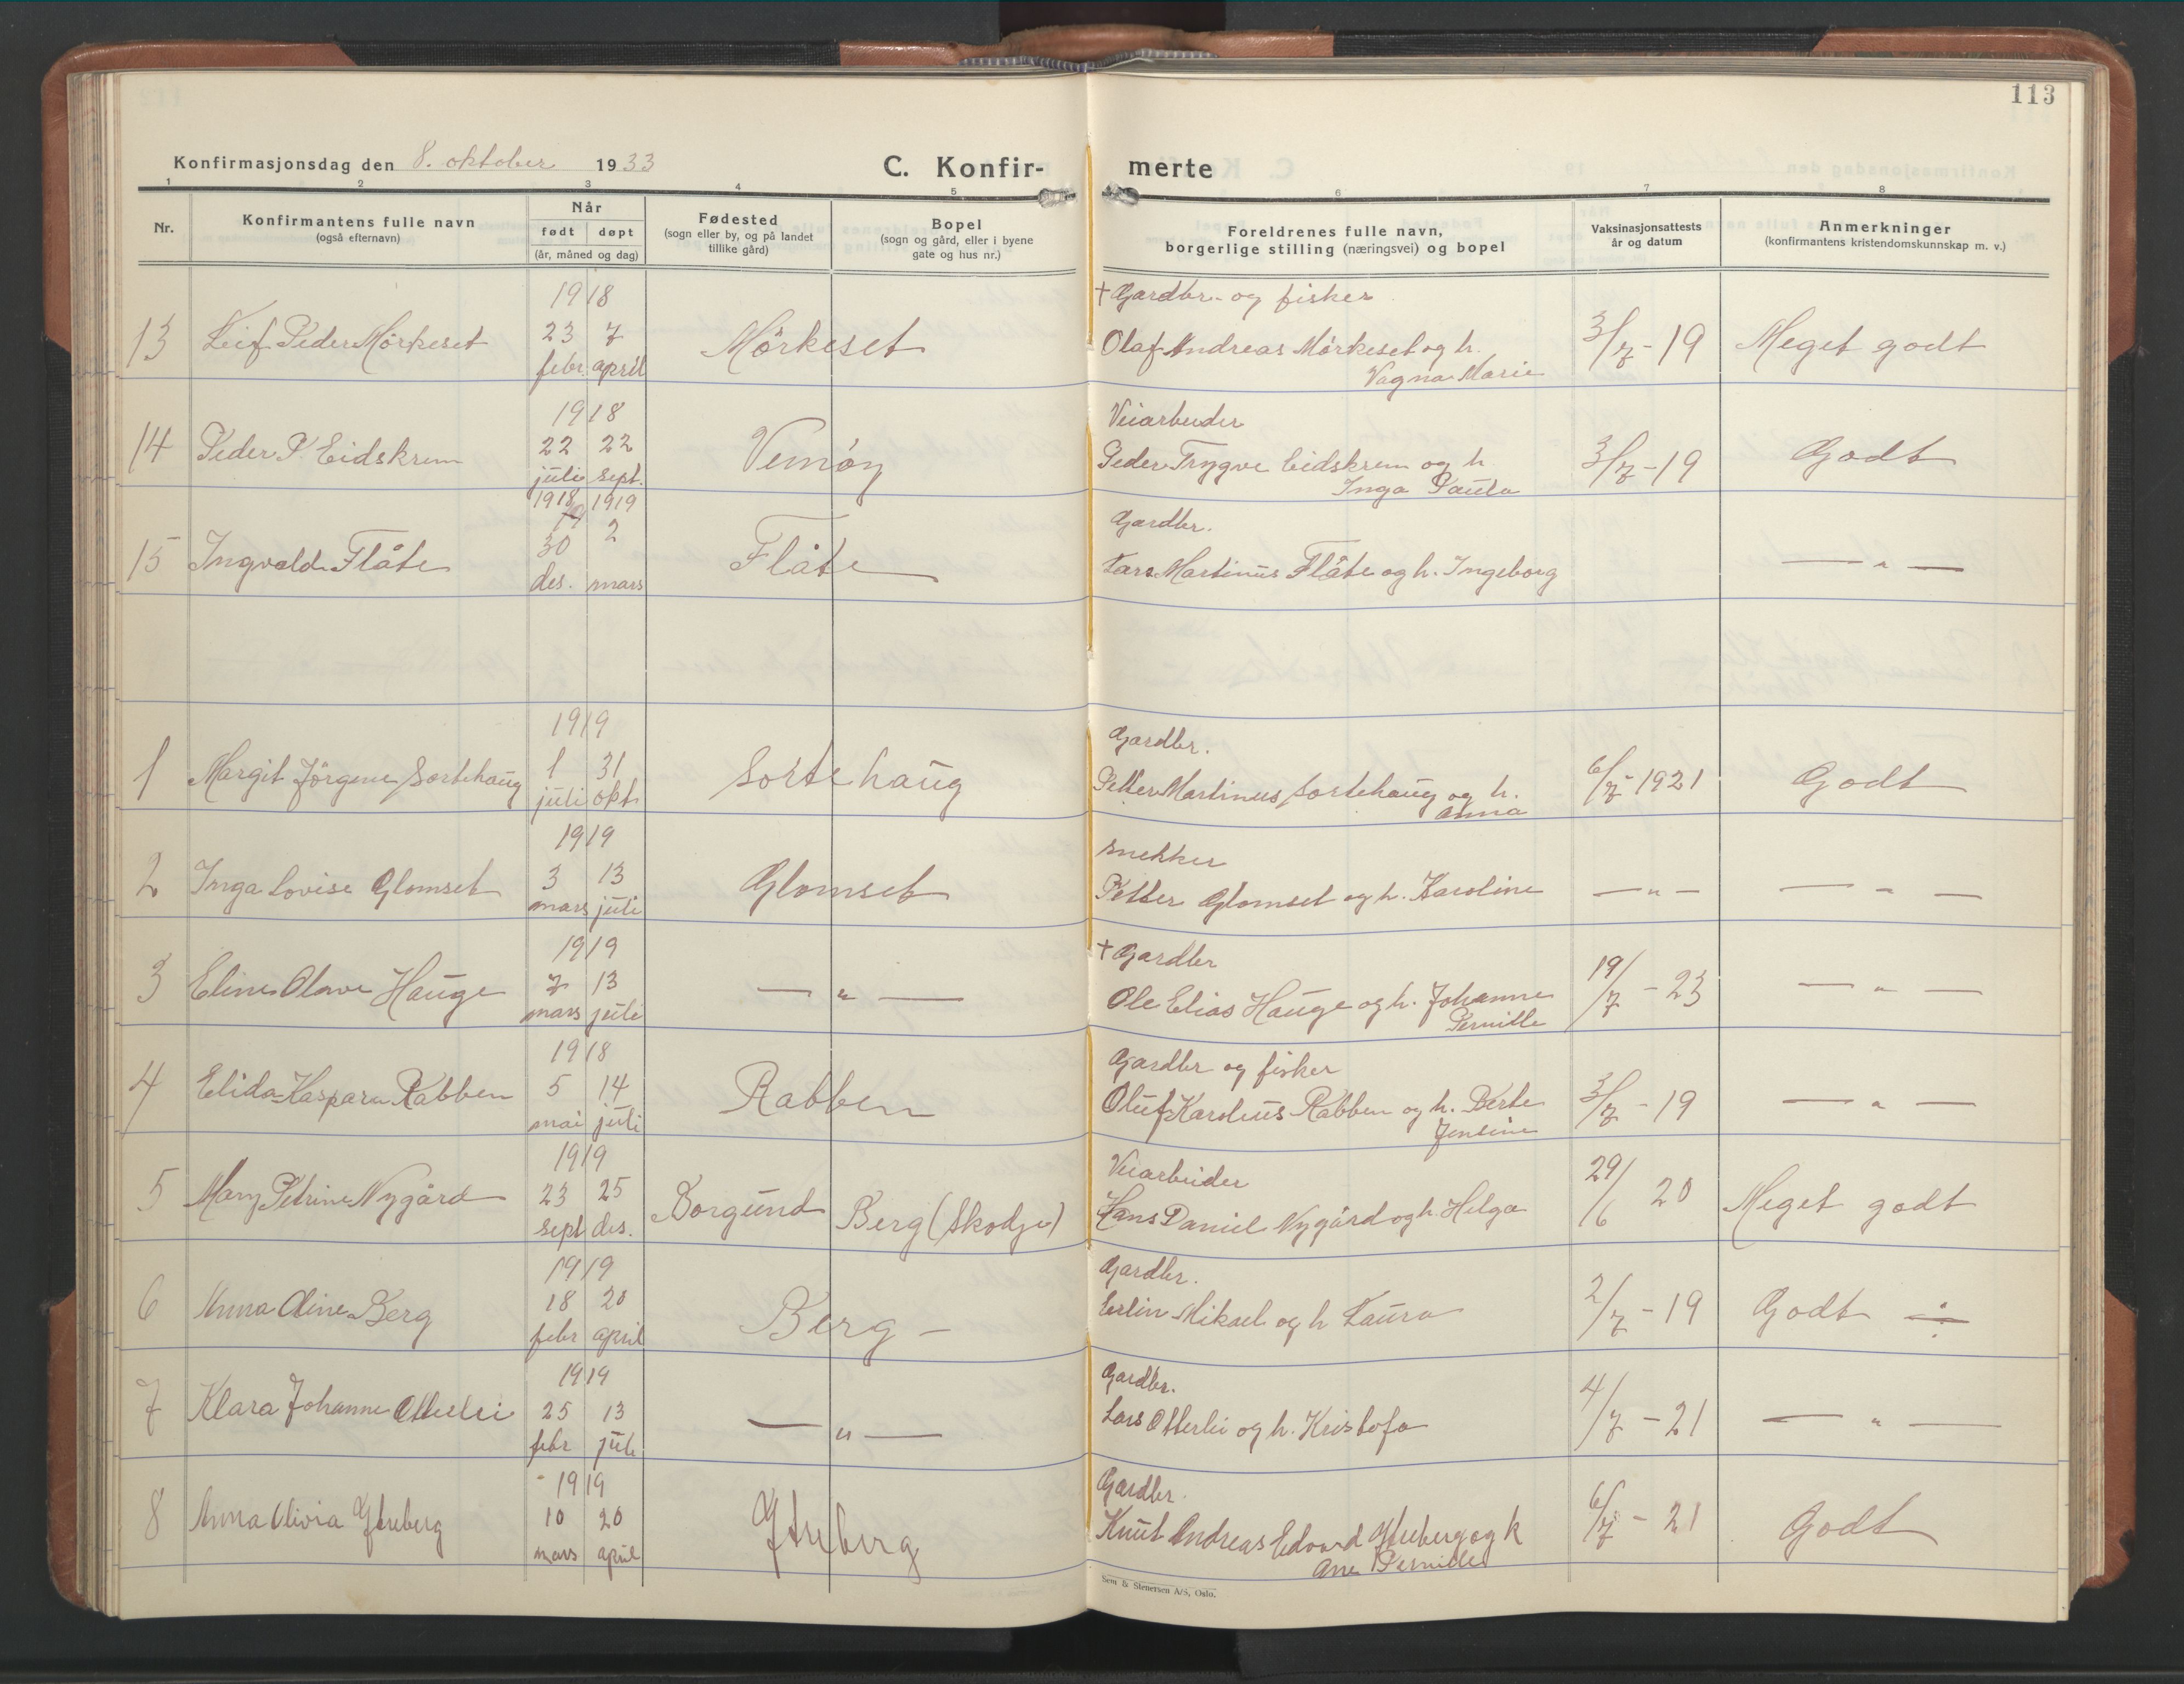 113
Konfirmasjonsdag den 8. oktober 1933
C. Konfir- merte
1 2 3 4 5 6 7 8
Nr.
Konfirmantens fulle navn
(også efternavn)
Når
født døpt
(år, måned og dag)
Fødested
(sogn eller by, og på landet
tillike gård)
Bopel
(sogn og gård, eller i byene
gate og hus nr.)
Foreldrenes fulle navn,
borgerlige stilling (næringsvei) og bopel
Vaksinasjonsattests
år og datum
Anmerkninger
(konfirmantens kristendomskunnskap m. v.)
1918 + Gardbr. og fisker
13 Leif Peder Mörkeset 23 7 Mörkeset Olaf Andreas Mörkeset og h. 3/7-19 Meget godt
febr. april Vagna Marie
1918 Veiarbeider
14 Peder P. Eidskrem 22 22 Vemöy Peder Trygve Eidskrem og h 3/7-19 Godt
juli sept. Inga Paula
1918 1919 Gardbr.
15 Ingvald Flåte 30 2 Flåte Lars Martinus Flåte og h. Ingeborg — " —
des. mars
1919 Gardbr.
1 Margit Jörgine Sortehaug 1 31 Sortehaug Petter Martinus Sortehaug og h. 6/7-1921 Godt
juli okt. Anna
1919 Snekker
2 Inga Lovise Glomset 3 13 Glomset Petter Glomset og h. Karoline — " — — " —
mars juli
1919 + Gardbr
3 Eline Olave Hauge 7 13 — " — Ole Elias Hauge og h. Johanne 19/7 - 23 — " —
mars juli Pernille
1918 Gardbr og fisker
4 Elida Kaspara Rabben 5 14 Rabben Oluf Karolius Rabben og h. Berte 3/7 - 19 — " —
mai juli Jensine
1919 Veiarbeider
5 Mary Petrine Nygård 23 25 Borgund Berg (Skodje) Hans Daniel Nygård og h. Helga 29/6 20 Meget godt
sept des.
1919 Gardbr.
6 Anna Oline Berg 18 20 Berg — Erlin Mikael og h Laura 2/7 - 19 Godt ÷
febr april
1919 Gardbr.
7 Klara Johanne Otterlei 25 13 — " — Lars Otterlei og h. Kristofa 4/7 - 21 — " —
febr juli
1919 Gardbr.
8 Anna Olivia Ytreberg 10 20 Ytreberg Knut Andreas Edvard Ytreberg og k 6/7 - 21 Godt
mars april Ane Pernille
Sem & Stenersen A/S, Oslo.